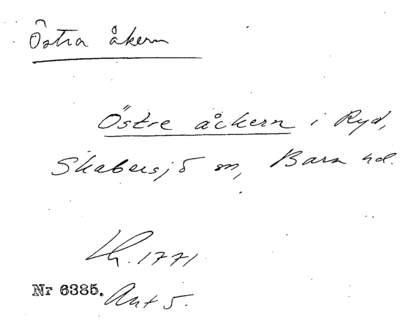 Östra åkern
Östre åckern i Ryd,
Skabersjö sn, Bara hd.
Lh. 1771.
Nr 6385. Akt 5.